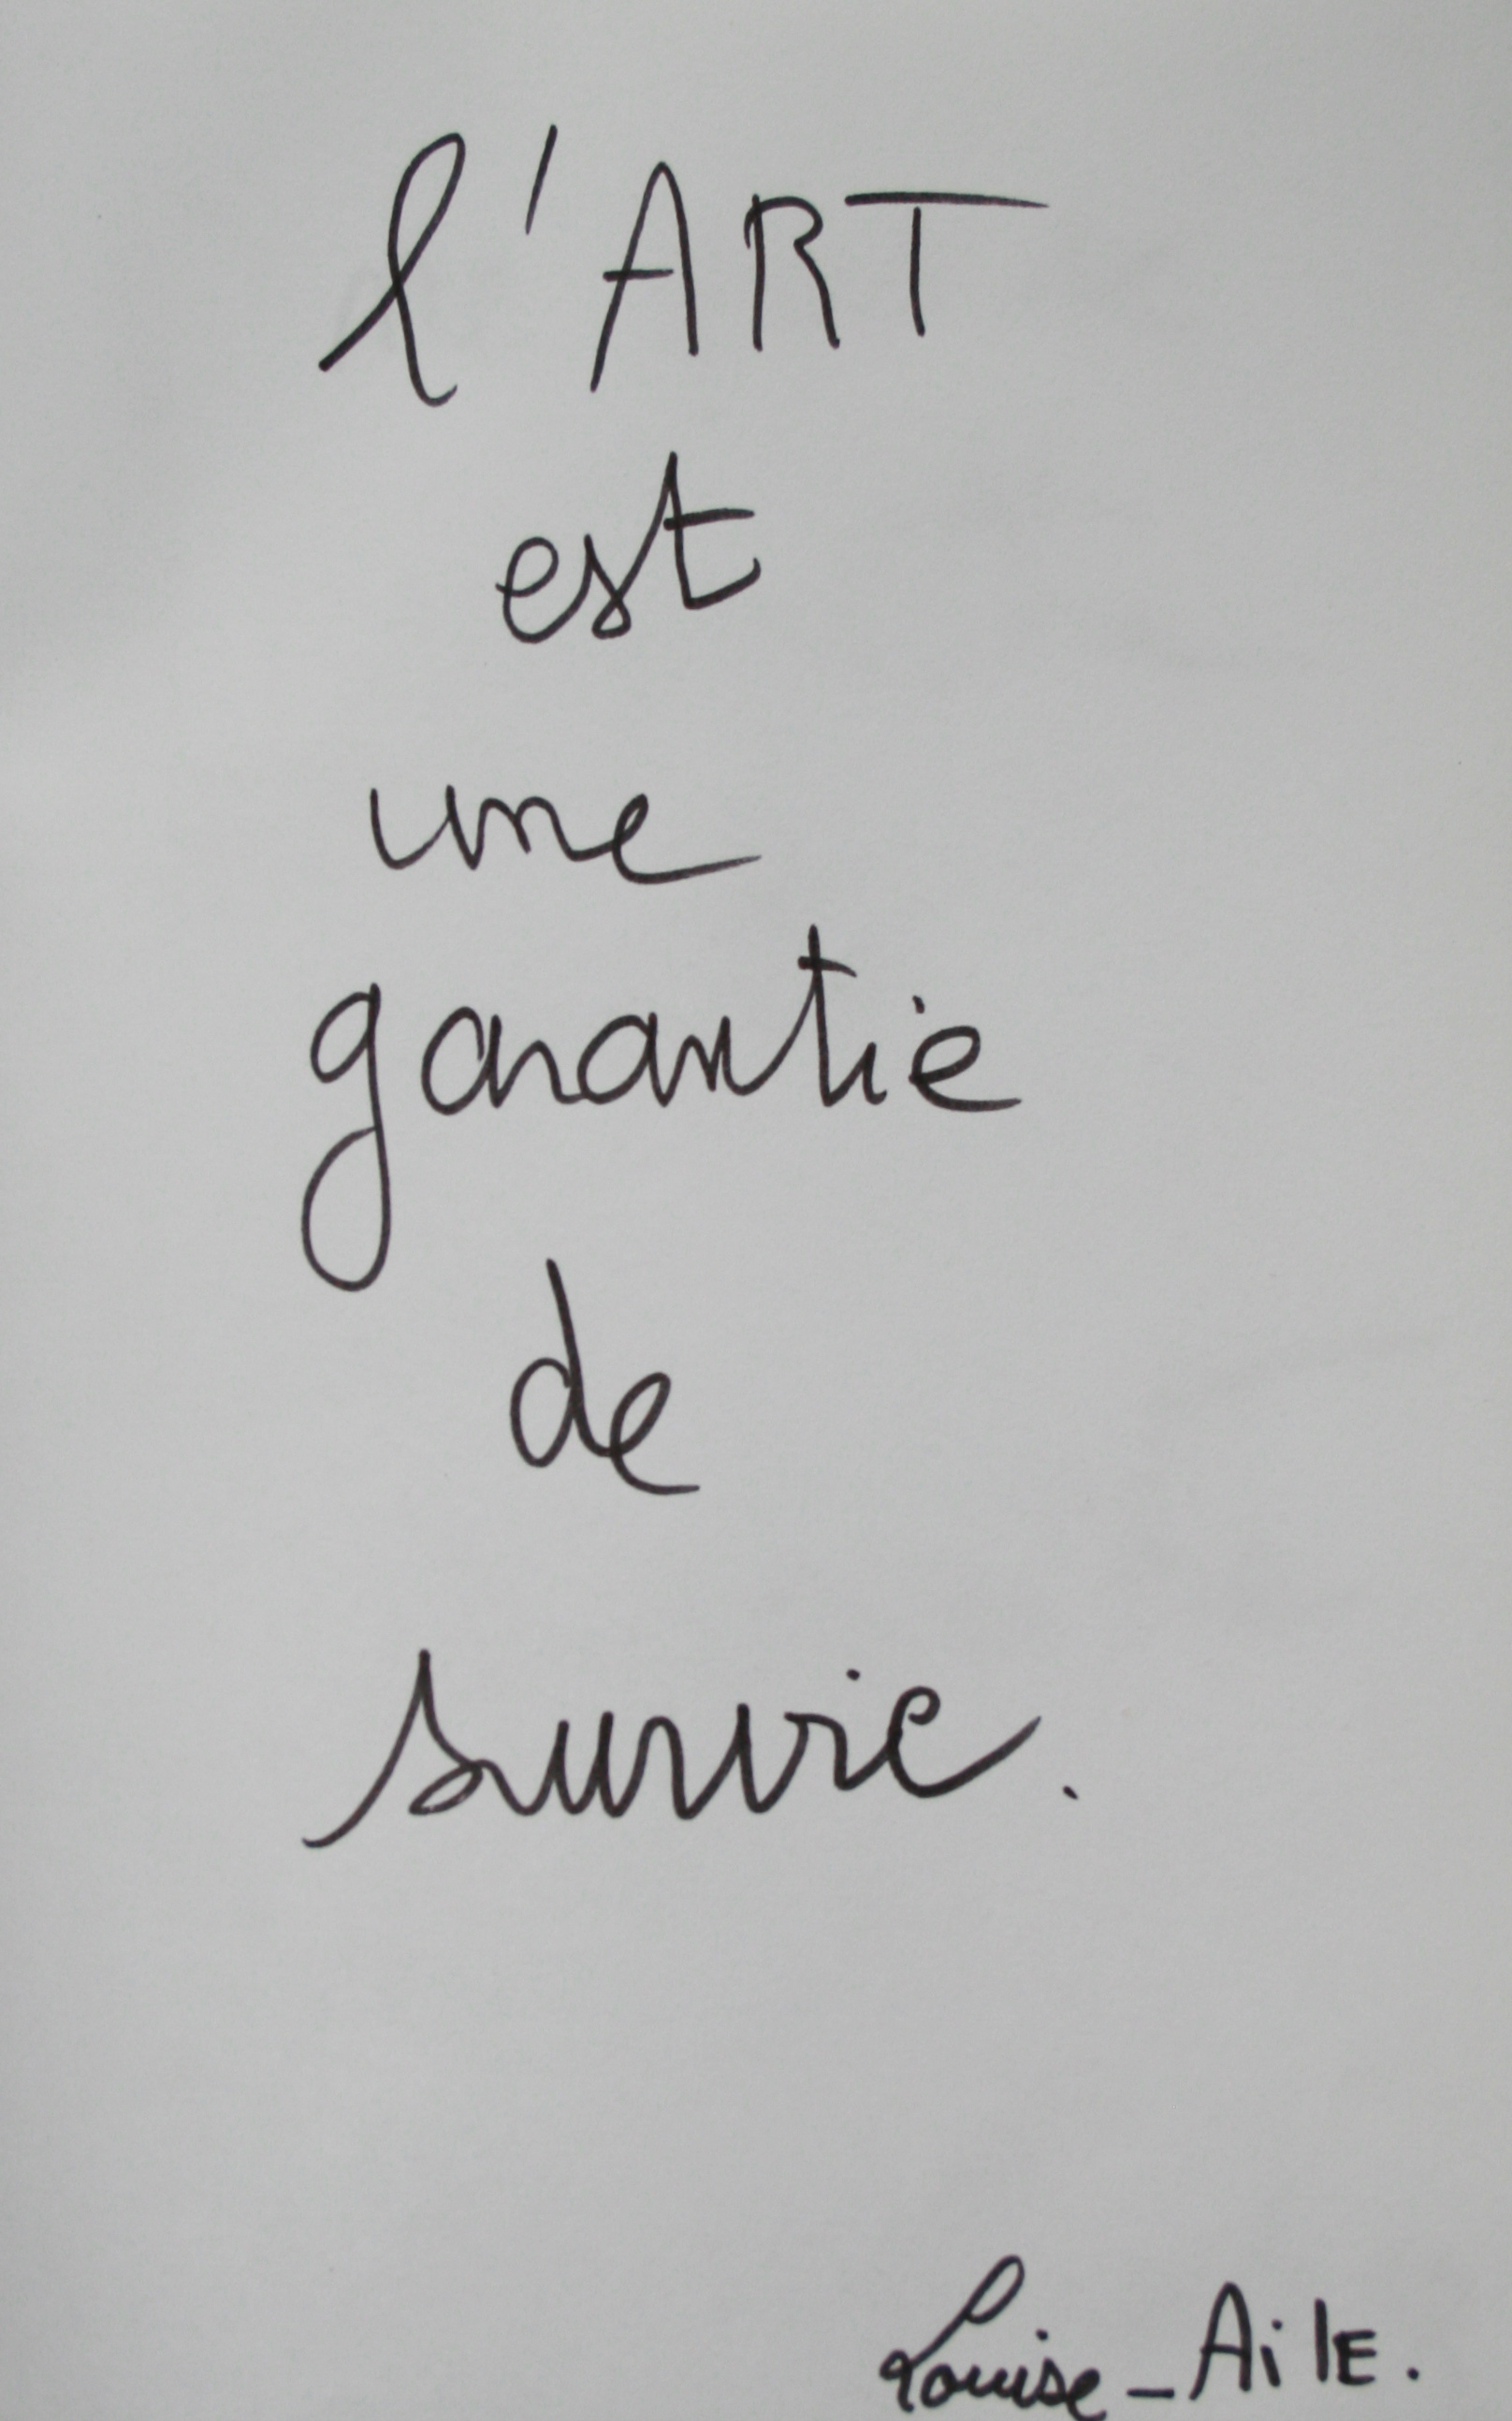 l'ART
est
une
garantie
de
survie.
Louise_AilE.